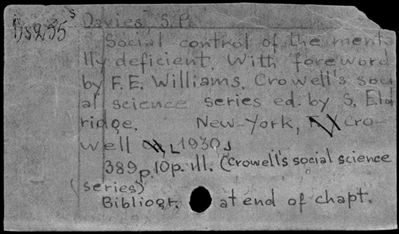 Ds255 s Davies, S.P.
Social control of the ment-
lly deficient. With foreword
by F.E. Williams. Crowell's soci
al science series ed. by S. Eld
ridge. New-York, Cro-
well [1930]
389p. 10p. ill. (Crowell's social science
(series)
Bibliogr. at end of chapt.